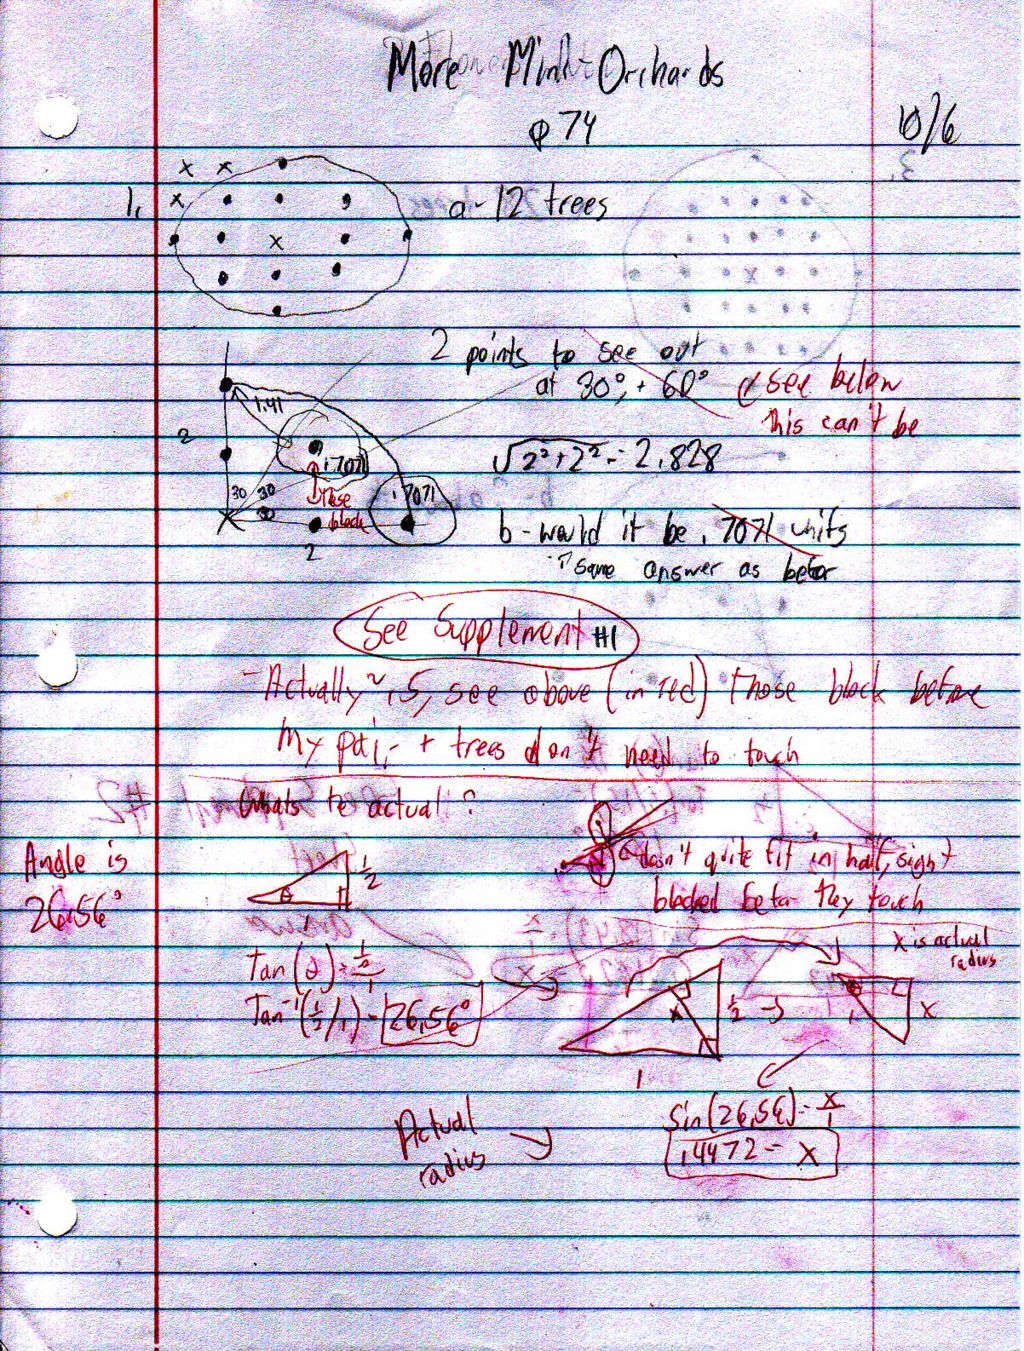 More Mini-Orchards
p 74
10/6
1. a- 12 trees
2 points to see out
at 30°, + 60° see below
this can't be
1.41
2
.7071
.7071
30 30
30
these
block
2
√2²+2² = 2.828
b- would it be .7071 units
↑ same answer as before
See Supplement #1
- Actually ~.5, see above (in red) those block before
my pair + trees don't need to touch
Whats te actual?
Angle is
26.56°
θ 1/2
doesn't quite fit in half, sight
blocked before they touch
Tan(θ) = 1/2/1
Tan⁻¹(1/2/1) = 26.56°
X is actual
radius
X 1/2 → θ X
1 1
Sin(26.56) = x/1
.4472 = X
Actual
radius